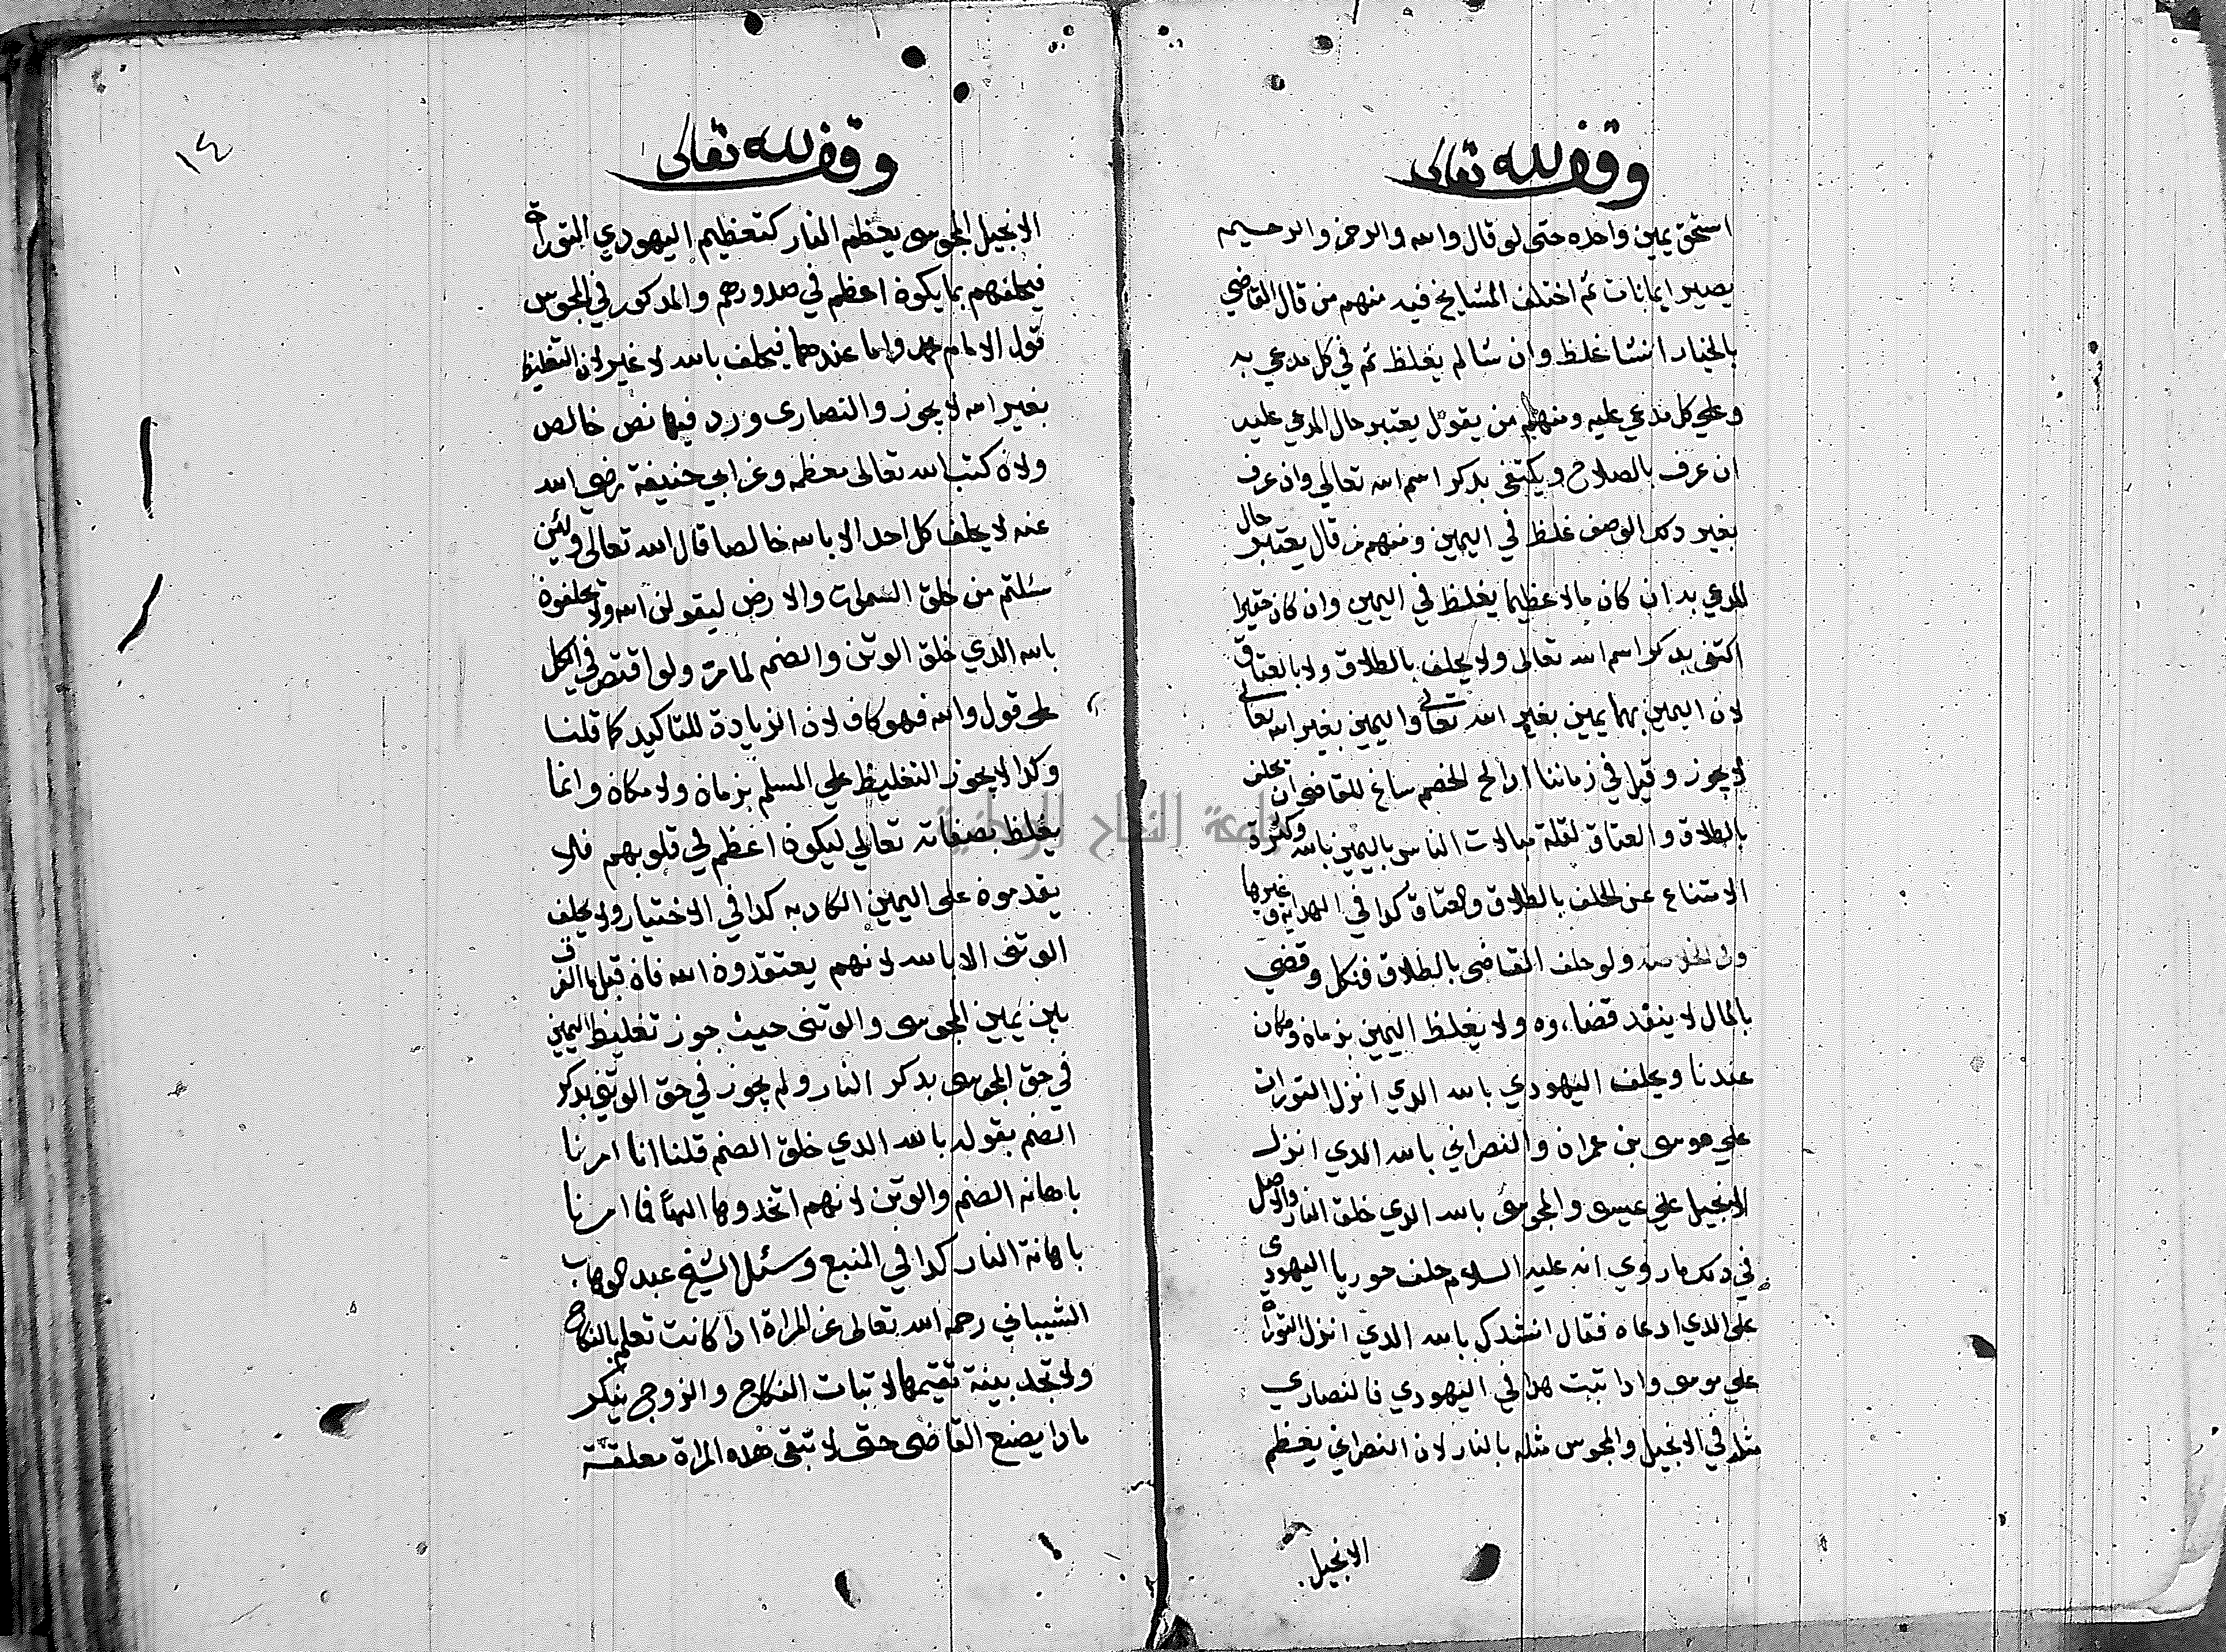 وقف لله تعالى
استحق يمين واحده حتى لو قال والله والرحمن والرحيم
يصير ايمانات ثم اختلف المشايخ فيه منهم من قال القاضي
بالخيار انشا غلظ وان شا لم يغلظ ثم في كل مدعي به
وعلي كل مدعي عليه ومنهم من يقول يعتبر حال المدعي عليه
ان عرف بالصلاح ويكتفى بدكر اسم الله تعالي وان عرف
بغير دلك الوصف غلظ في اليمين ومنهم من قال يعتبر حال
المدعي به ان كان مالا عظيما يغلظ في اليمين وان كان حقيرا
اكتفى بدكر اسم الله تعالى ولا يحلف بالطلاق ولا بالعتاق
لان اليمين بهما يمين بغير الله تعالى واليمين بغير الله تعالى
لا يجوز وقيل في زماننا ادا لح الخصم ساغ للقاضي ان يحلف
بالطلاق والعتاق لقلة مبالات الناس باليمين بالله وكثرة
الامتناع عن الحلف بالطلاق والعتاق كدا في الهداية وغيرها
وفي الخلاصه ولو حلف القاضي بالطلاق فنكل وقضي
بالمال لا ينفد قضاءوه ولا يغلظ اليمين بزمان ومكان
عندنا ويحلف اليهودي بالله الدي انزل التوراة
علي موسى بن عمران والنصراني بالله الدي انزل
الانجيل علي عيسى والمجوسى بالله الدي خلق النار والاصل
في دلك ما روي انه عليه السلام حلف حوريا اليهودي
على الدي ادعاه فقال انشدك بالله الدي انزل التوراة
علي موسى وادا تبت هدا في اليهودي فالنصاري
مثله في الانجيل والمجوس مثله بالنار لان النصراني يعظم
الانجيل
١٤
وقف لله تعالى
الانجيل المجوسى يعظم النار كتعظيم اليهودي التوراة
فيحلفهم بما يكون اعظم في صدورهم والمدكور في المجوس
قول الامام محمد واما عندهما فيحلف بالله لا غير لان التغليظ
بغير الله لا يجوز والنصارى ورد فيها نص خالص
ولان كتب الله تعالى معظمه وعن ابي حنيفة رضي الله
عنه لا يحلف كل احد الا بالله خالصا قال الله تعالى ولئن
سئلتم من خلق السموات والارض ليقولن الله ولا يحلفون
بالله الدي خلق الوتن والصنم لما مر ولو اقتصر في الكل
على قول والله فهو كاف لان الزيادة للتاكيد كما قلنا
وكدا لا يجوز التغليظ علي المسلم بزمان ولا مكان وانما
يغلظ بصفاته تعالي ليكون اعظم في قلوبهم فلا
يقدمون على اليمين الكادبه كدا في الاختيار ولا يحلف
الوتنى الا بالله لانهم يعتقدون الله فان قيل ما الفرق
بين يمين المجوسى والوتنى حيث جوز تغليظ اليمين
في حق المجوسى بدكر النار ولم يجوز في حق الوتني بدكر
الصنم بقوله بالله الدي خلق الصنم قلنا انا امرنا
باهانه الصنم والوتن لانهم اتخدوها الهتا فما امرنا
باهانة النار كدا في المنبع وسئل الشيخ عبد الوهاب
الشيباني رحمه الله تعالى عن المراة ادا كانت تعلم بالنكاح
ولا تجد بينة تقيمها لاتبات النكاح والزوج ينكر
مادا يصنع القاضى حتى لا تبقى هده المراة معلقة